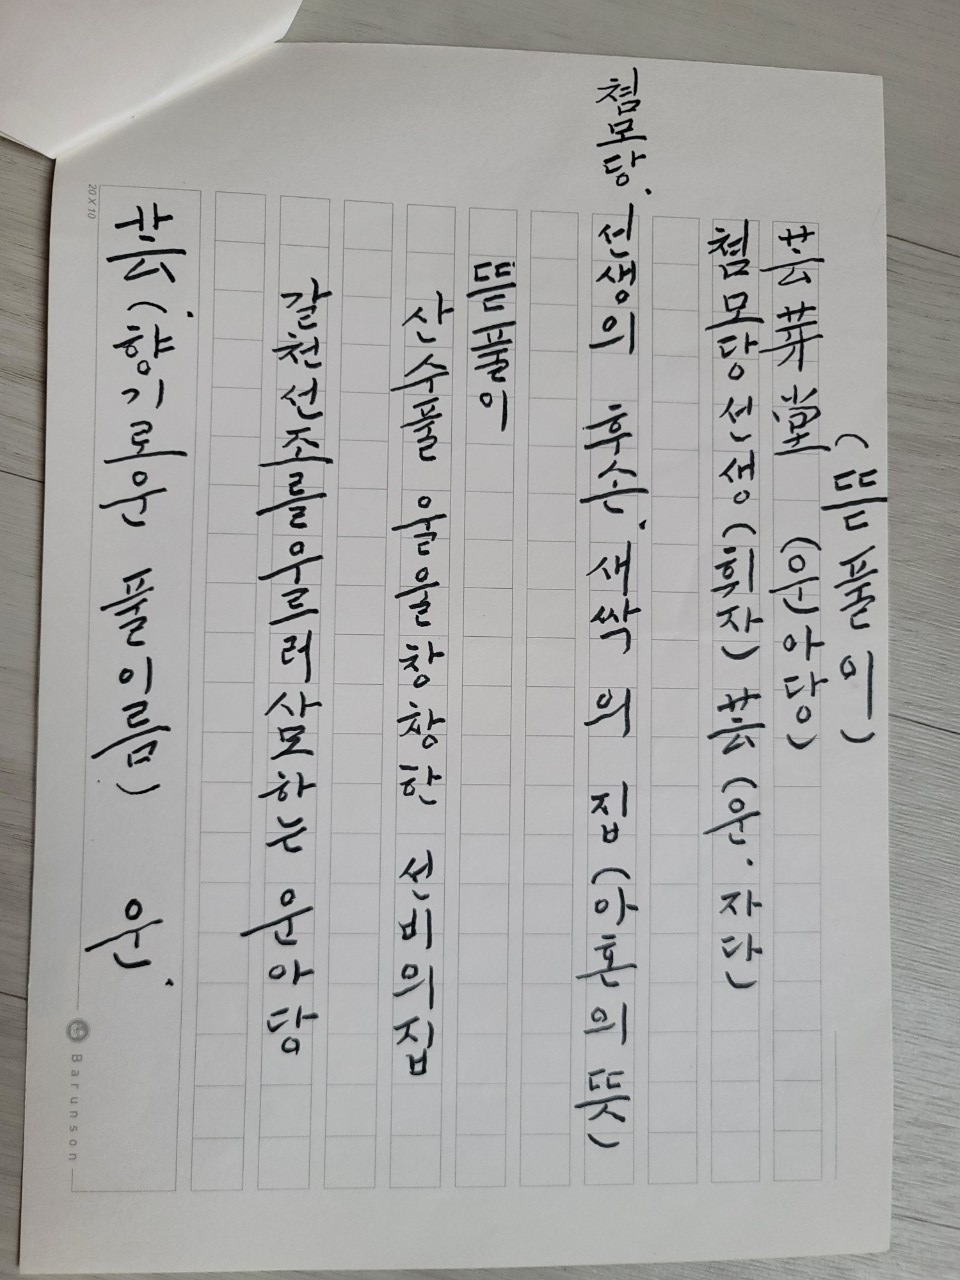 (뜯풀이)
芸芽堂 (운아당)
첨모당선생(휘자) 芸 (운. 자단
첨모당. 선생의 후손. 새싹의 집 (아혼의 뜻)
뜯풀이
산수풀 울울창창한 선비의집
갈천선조를우르러사모하는 운아당
芸(향기로운 풀이름) 운.
20 X 10
Barunson